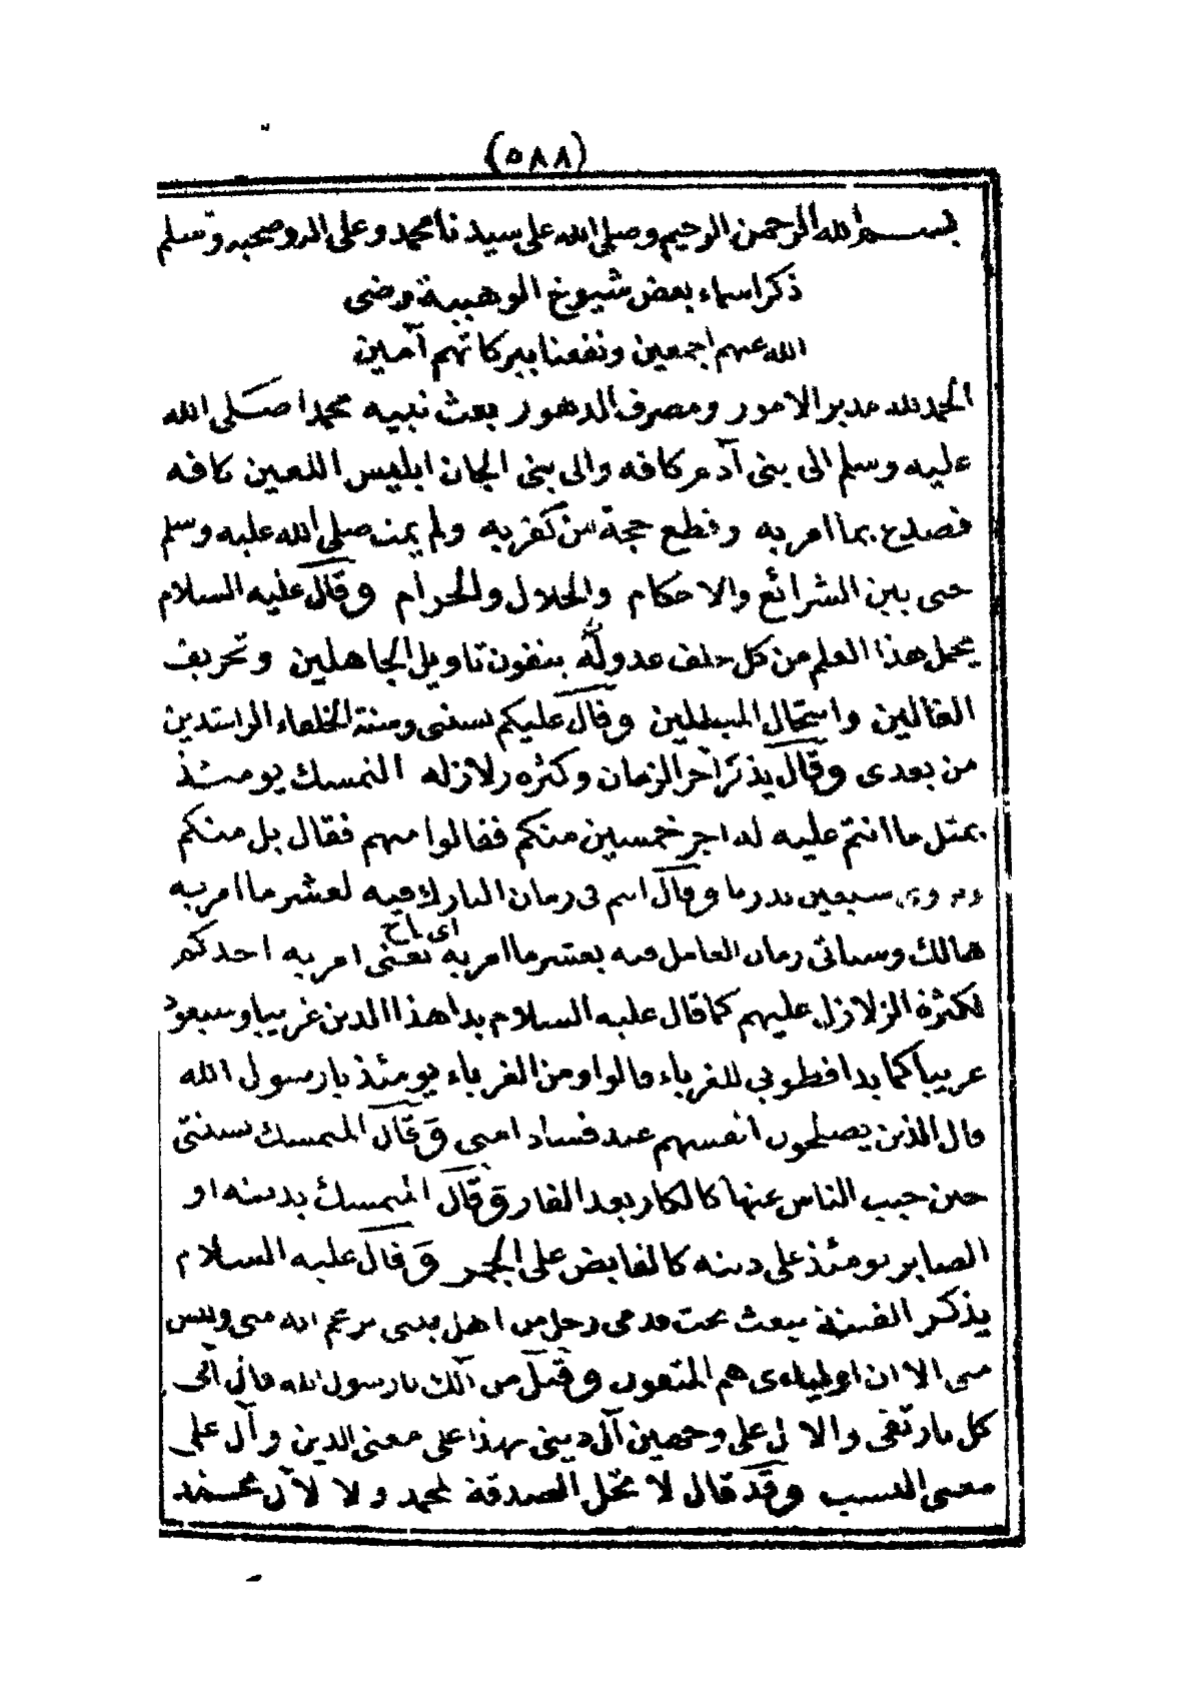 (٥٨٨)
بسم الله الرحمن الرحيم وصلى الله على سيدنا محمد وعلى اله وصحبه وسلم
ذكر اسماء بعض شيوخ الوهبية رضى
الله عنهم اجمعين ونفعنا ببركاتهم آمين
الحمد لله مدبر الامور ومصرف الدهور بعث نبيه محمدا صلى الله
عليه وسلم الى بنى آدم كافه والى بنى الجان ابليس اللعين كافه
فصدع بما امر به وقطع حجة من كفر به ولم يمت صلى الله عليه وسلم
حتى بين الشرائع والاحكام والحلال والحرام وقال عليه السلام
يحمل هذا العلم من كل خلف عدوله ينفون تاويل الجاهلين وتحريف
الغالين وانتحال المبطلين وقال عليكم بسنتى وسنة الخلفاء الراشدين
من بعدى وقال يذكر آخر الزمان وكثره زلازله المتمسك يومئذ
بمثل ما انتم عليه له اجر خمسين منكم فقالوا منهم فقال بل منكم
سبعين بدريا وقال انتم فى زمان التارك فيه لعشر ما امر به
اى
هالك وسياتى زمان العامل فيه بعشر ما امر به يعنى امر به احدكم
لكثرة الزلازل عليهم كما قال عليه السلام بدا هذا الدين غريبا وسيعود
غريبا كما بدا فطوبى للغرباء قالوا ومن الغرباء يومئذ يا رسول الله
قال الذين يصلحون انفسهم عند فساد امتى وقال المتمسك بسنتى
حين خبب الناس عنها كالكار بعد الفار وقال المتمسك بدينه او
الصابر يومئذ على دينه كالقابض على الجمر وقال عليه السلام
يذكر الفتنة تبعث تحت قدمى رجل من اهل بيتى يزعم انه منى وليس
منى الا ان اوليائى هم المتقون وقيل من آلك يا رسول الله قال آلى
كل بار تقى والا لى على وجهين آل دينى بهذا على معنى الدين وآل على
معنى النسب وقد قال لا تحل الصدقة لمحمد ولا لآل محمد